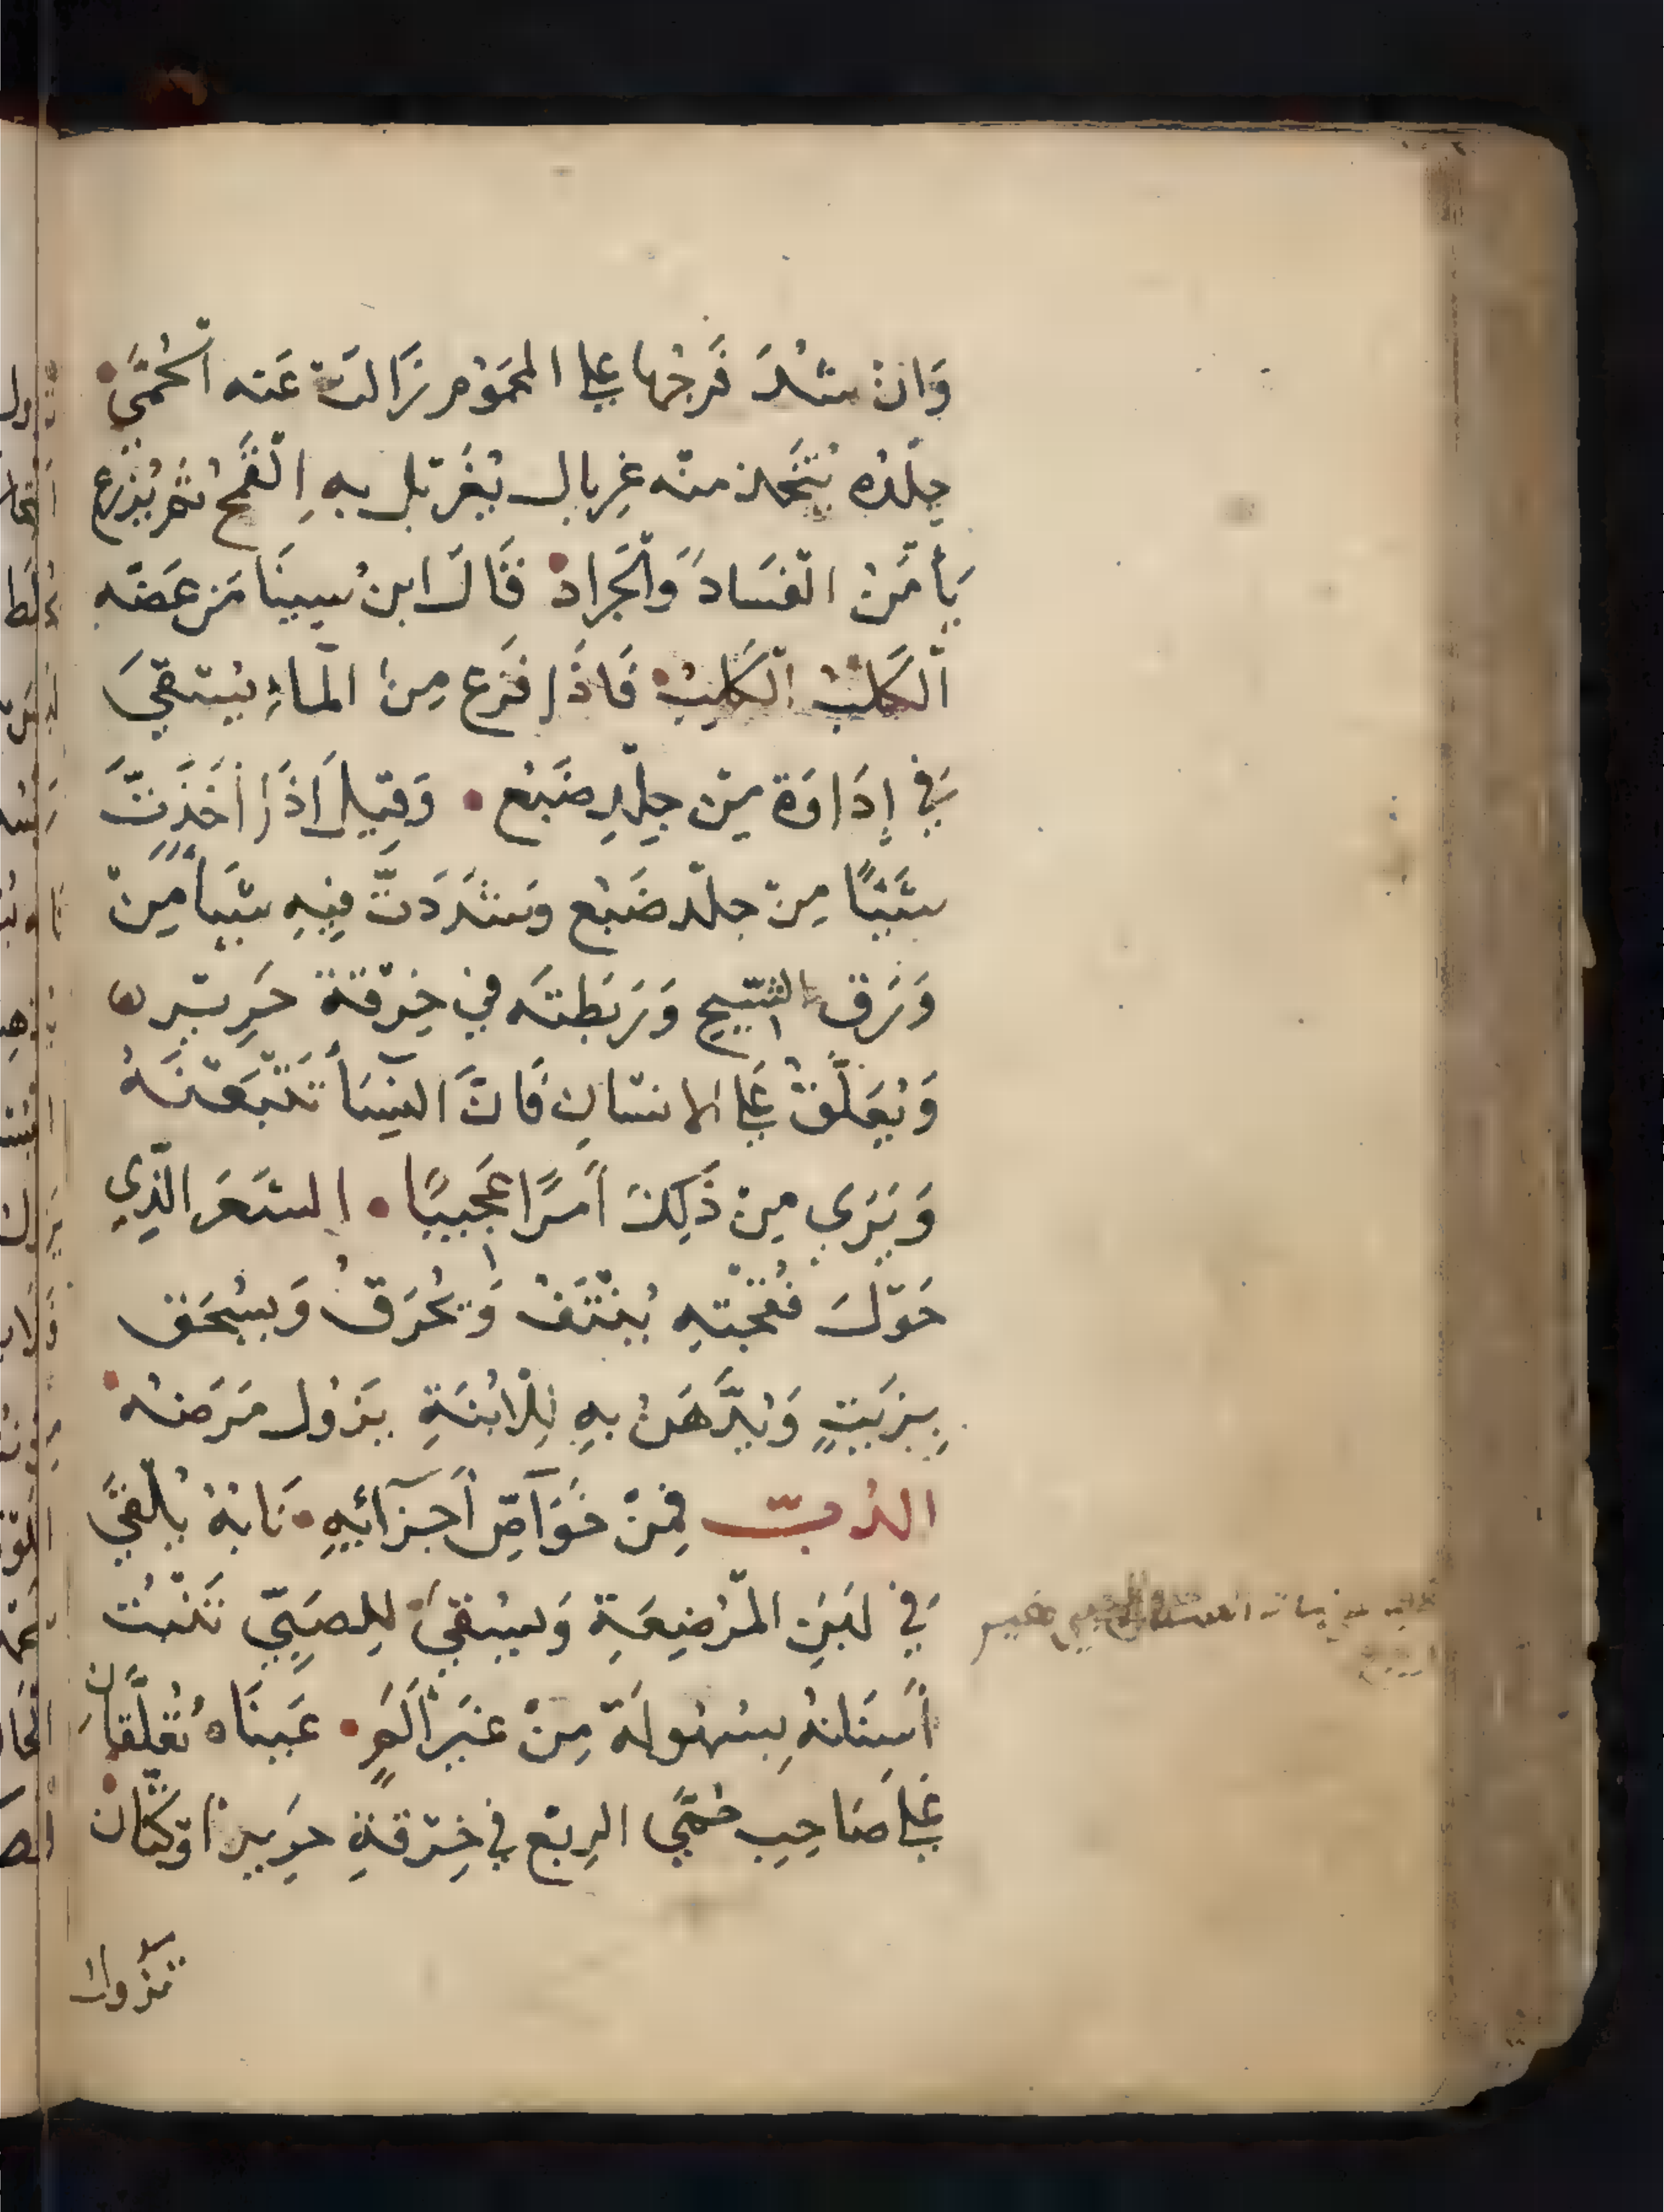 وَان شُدَّ فَرجُها علي المحمَوُم زَالَت عَنه الحُمَّيٰ
جِلْدُه يُتَّخَذ منْه غِربال يُغَرْبَل بهِ القَمح ثم يُزرع
يَأمَنُ الفَسَادَ وَالجَرادْ قَالَ ابن سِينَا مَن عَضَّه
الكَلبُ الكَلِبُ فَاذَا فَزع مِنَ المآءِ يُسْقيَ
في إدَاوَة مِن جِلْدِ ضَبُع وَقِيلَ اذَا أخَذتَ
شَيْئًا مِن جِلْد ضَبُع وَشَدَدتَ فِيهِ شَيأً مِنْ
وَرَق الشِّيح وَرَبَطتَه في خِرْقَة حَرِير
وَيُعَلَّقُ عَلي الانسَان فَانَّ النِسَآ تَتْبَعْنَهُ
وَيَرَي مِنْ ذَلِكَ أمرًا عَجِيبًا الشَعَر الّذِي
حَوْلَ فُقْحَتِهِ يُنْتَفُ وَيُحْرَقُ وَيُسْحَق
بِزَيتٍ وَيُدَّهَنُ بهِ لِلابْنَةِ يَزُول مَرَضهُ
الدُبّ فمِنْ خَوَآصِّ أجزَآئِهِ نَابُهُ يُلْقَيَ
في لَبَنِ المرْضِعَةِ وَيُسْقَيَ لِلصَبِيّ تَنْبُتُ
أَسْنَانُهُ بِسُهُولَة مِنْ غَيْر أَلَمٍ عَينَاهُ تُعَلَّقَان
عَلي صَاحِبِ حُمَّي الرِبْع في خِرْقَةِ حَرِير اَوْ كَتَّان
تزول